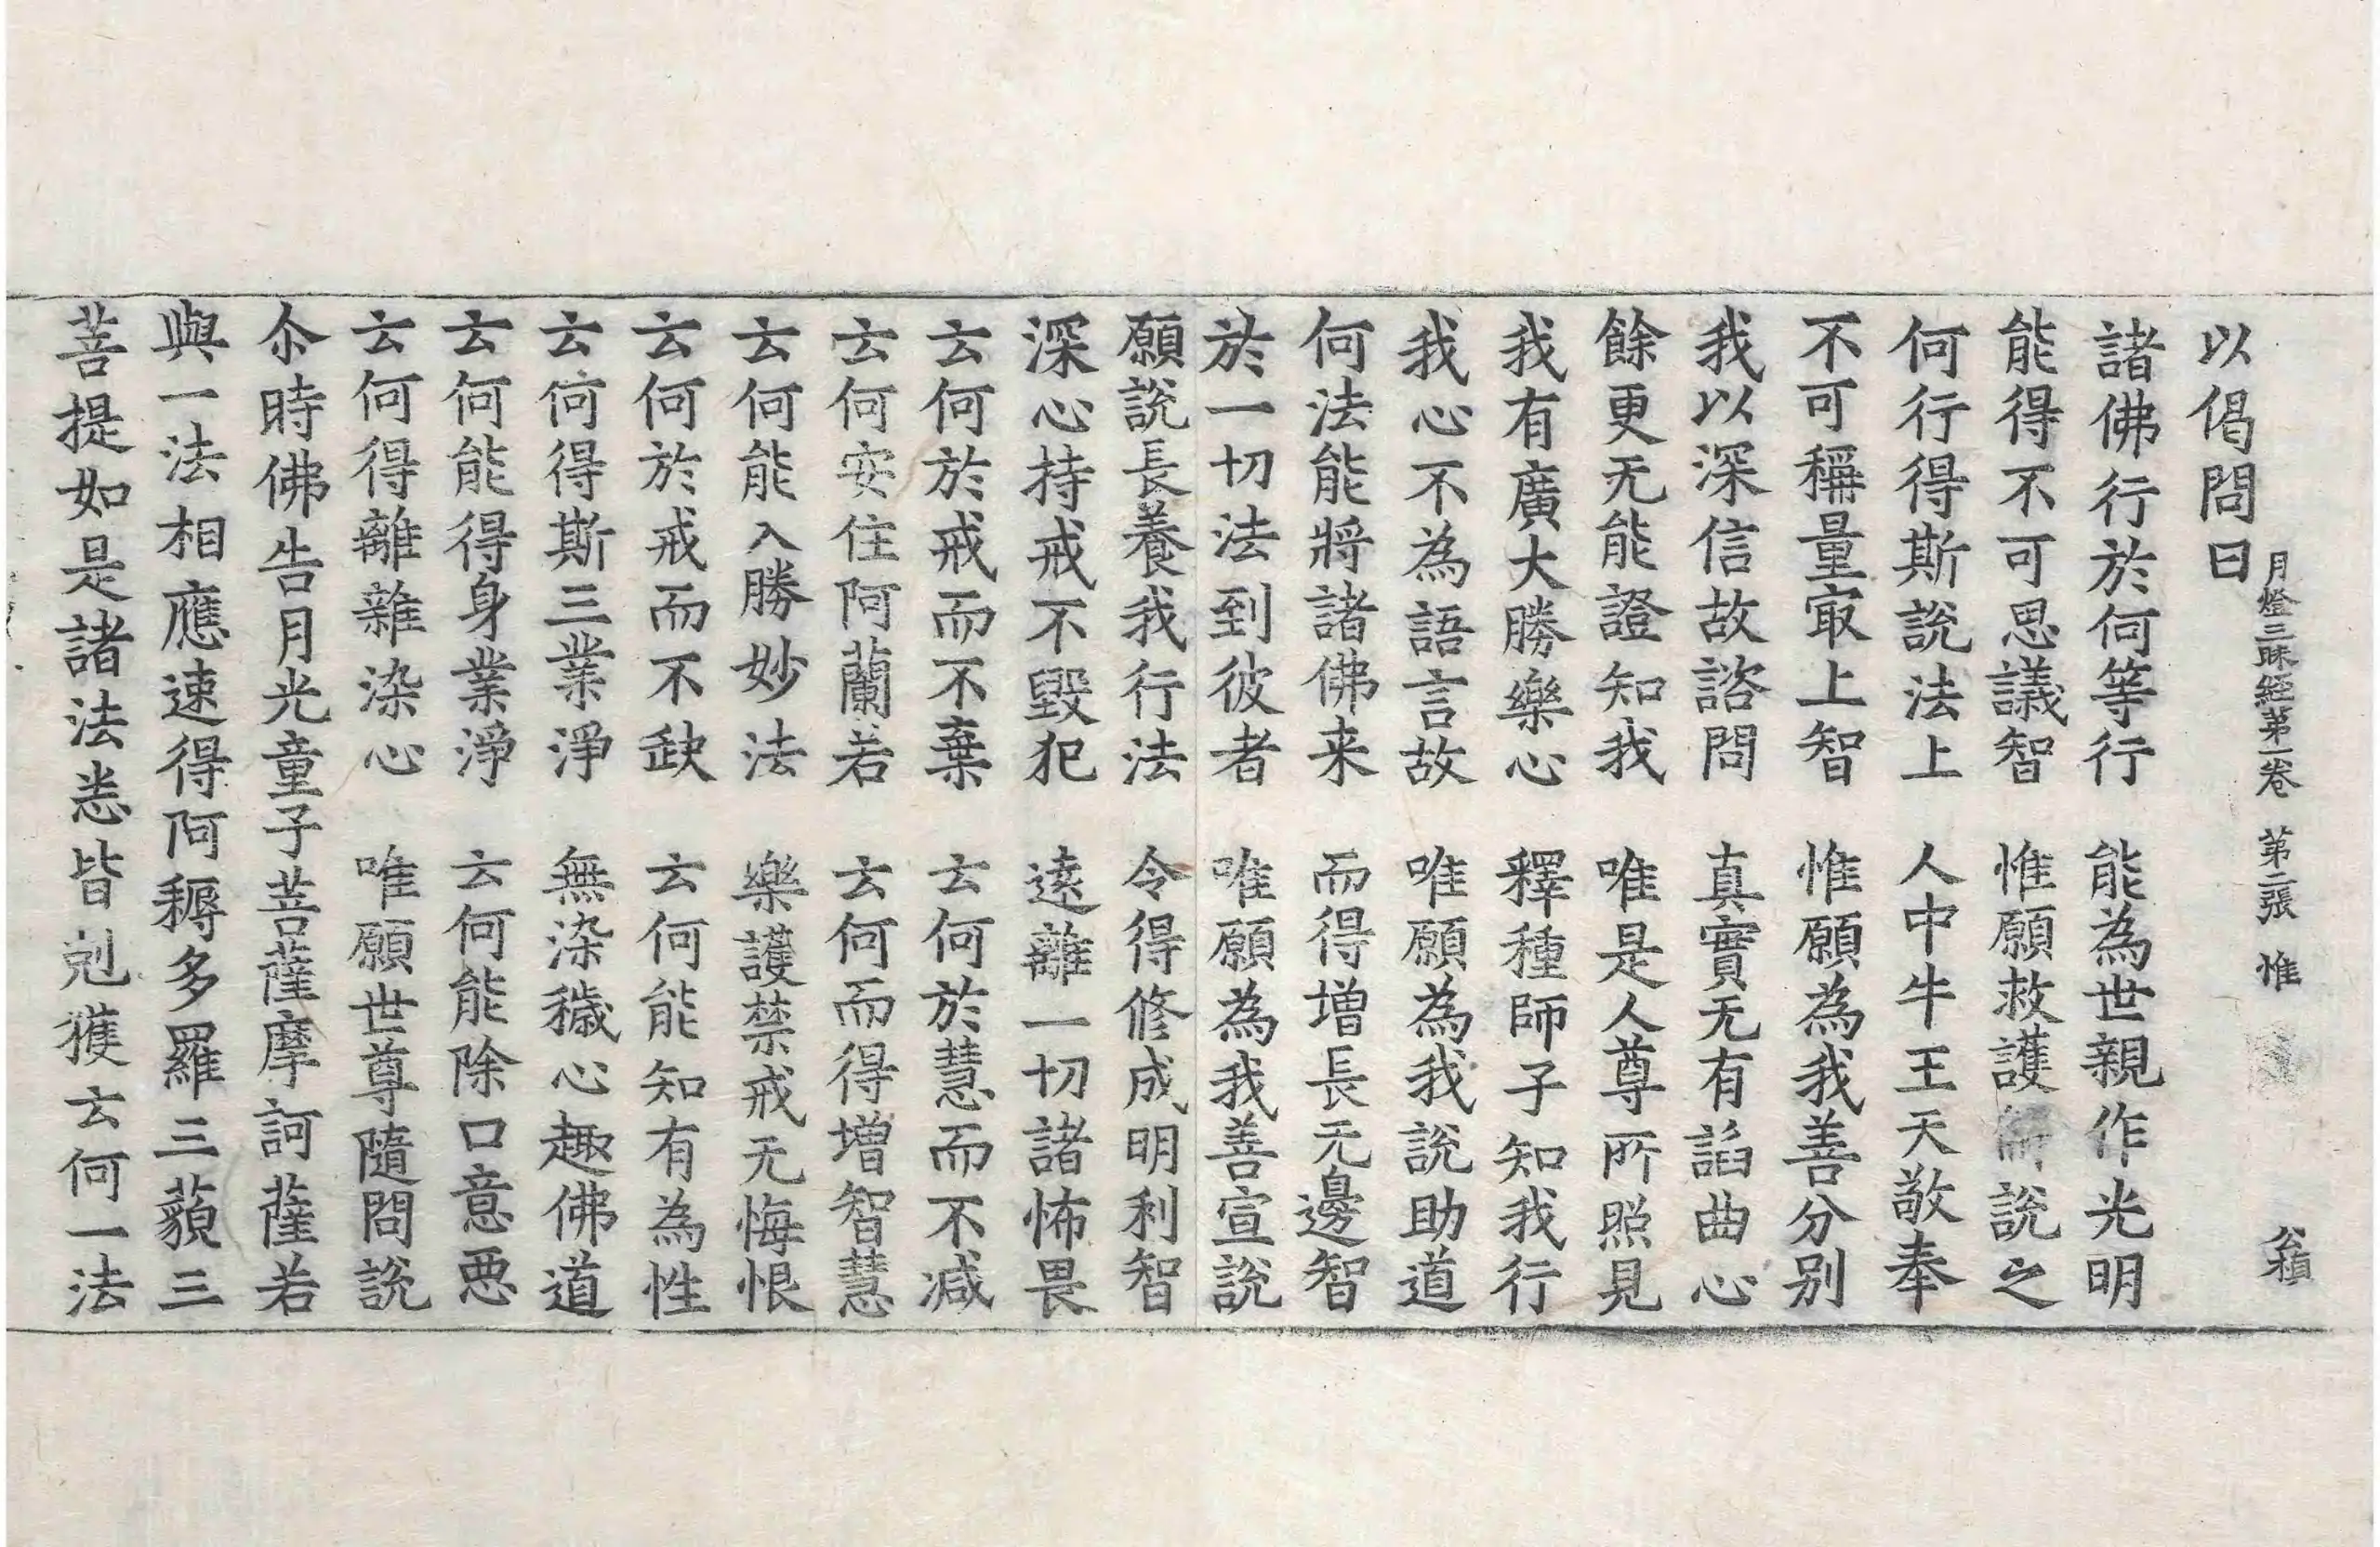 月燈三昧經第一卷 第二張 惟 公積
以偈問曰
諸佛行於何等行 能為世親作光明
能得不可思議智 惟願救護 說之
何行行得斯說法上 人中牛王天敬奉
不可稱量㝡上智 惟願為我善分别
我以深信故諮問 真實无有諂曲心
餘更无能證知我 唯是人尊所照見
我有廣大勝樂心 釋種師子知我行
我心不為語言故 唯願為我說助道
何法能將諸佛来 而得增長无邊智
於一切法到彼者 唯願為我善宣說
願說長養我行法 令得修成明利智
深心持戒不毀犯 遠離一切諸怖畏
云何於戒而不棄 云何於慧而不减
云何安住阿蘭若 云何而得增智慧
云何能入勝妙法 樂護禁戒无悔恨
云何於戒而不缺 云何能知有為性
云何得斯三業淨 無染穢心趣佛道
云何能得身業淨 云何能除口意惡
云何得離雜染心 唯願世尊隨問說
尒時佛告月光童子菩薩摩訶薩若
與一法相應速得阿耨多羅三藐三
菩提如是諸法悉皆剋獲云何一法